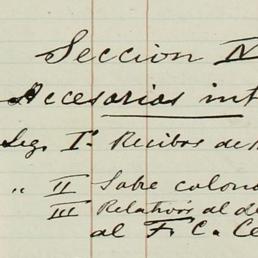 Seccion N
Accesorias int
Leg. I.º Recibos de
„ II Sobre colon
III Relativos al de
al F. C. Ce